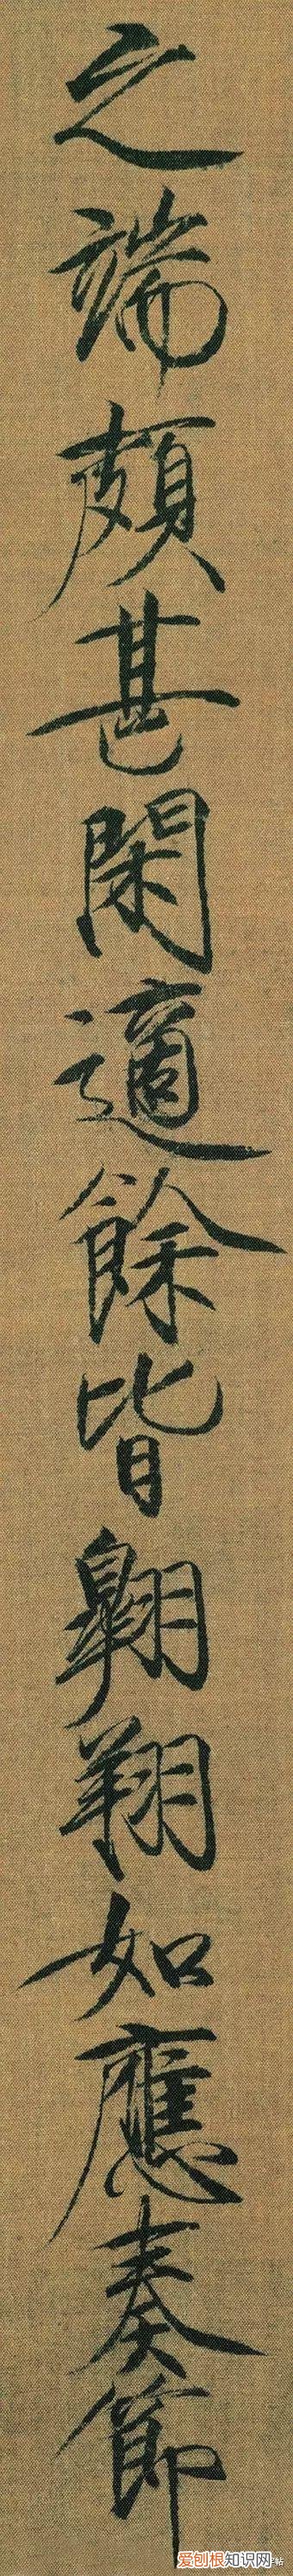 之端頗甚閑適餘皆翱翔如應奏節
爱刨根知识网
帖